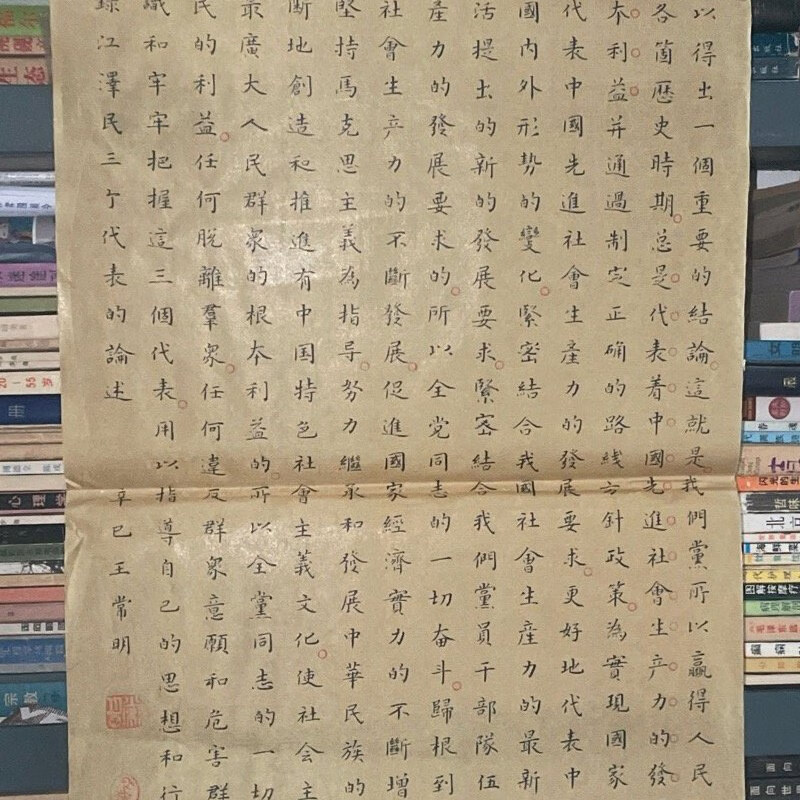 以得出一個重要的結論。這就是。我們黨所以贏得人民
各箇歷史時期。总是代表着中國先進社會生产力的發
本利益并通過制定正确的路线方針政策。為實現國家
代表中國先進社會生產力的發展要求。更好地代表中
國内外形勢的變化。緊密結合我國社會生產力的最新
活提出的新的發展要求。緊密結合我們黨員干部隊伍
產力的發展要求的。所以全党同志的一切奋斗。歸根到
社會生产力的不斷發展。促進國家經濟實力的不斷增
堅持馬克思主義為指导。努力繼承和發展中華民族的
断地創造和推進有中国特色社會主義文化。使社会主
最廣大人民群衆的根本利益的。所以全黨同志的一切
民的利益。任何脱離羣衆。任何違反群衆意願和危害群
識和牢牢把握這三個代表。用以指導自己的思想和行
錄江澤民三个代表的論述
辛巳王常明
生态
心理学
宗教